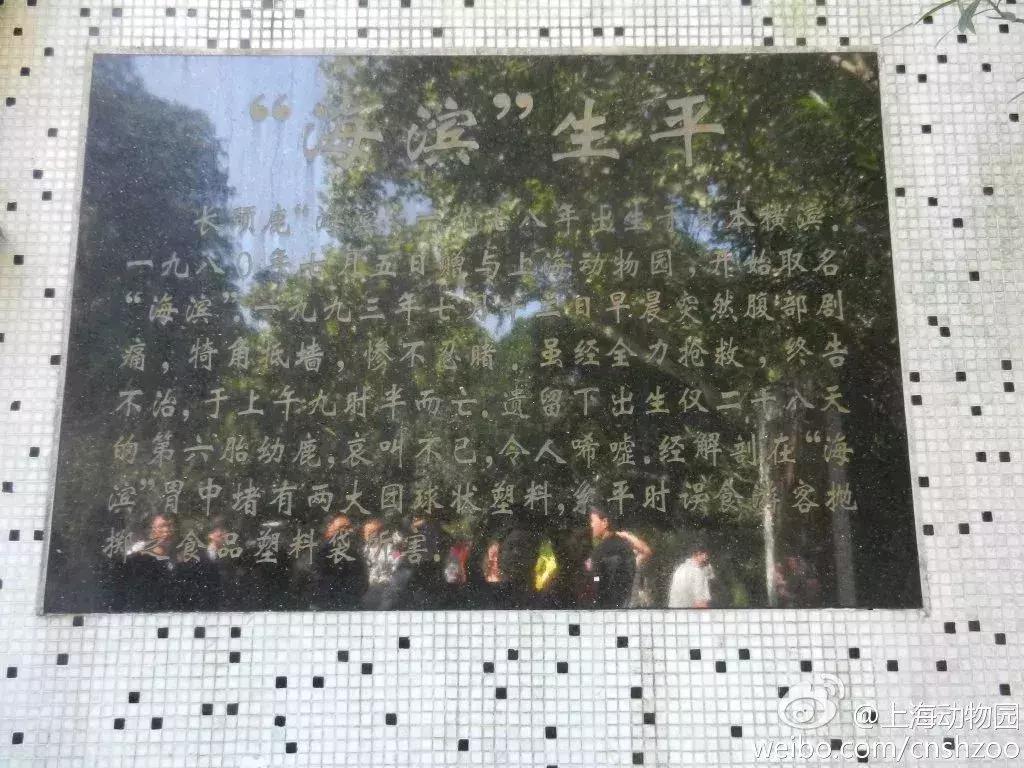 “海滨”生平
长颈鹿“海滨”一九七八年出生于日本横滨.
一九八〇年七月五日赠与上海动物园,开始取名
“海滨”一九九三年七月十三日早晨突然腹部剧
痛,犄角抵墙,惨不忍睹.虽经全力抢救,终告
不治,于上午九时半而亡.遗留下出生仅二十八天
的第六胎幼鹿,哀叫不已,令人唏嘘.经解剖在“海
滨”胃中堵有两大团球状塑料,系平时误食游客抛
掷之食品塑料袋所害.
@上海动物园
weibo.com/cnshzoo